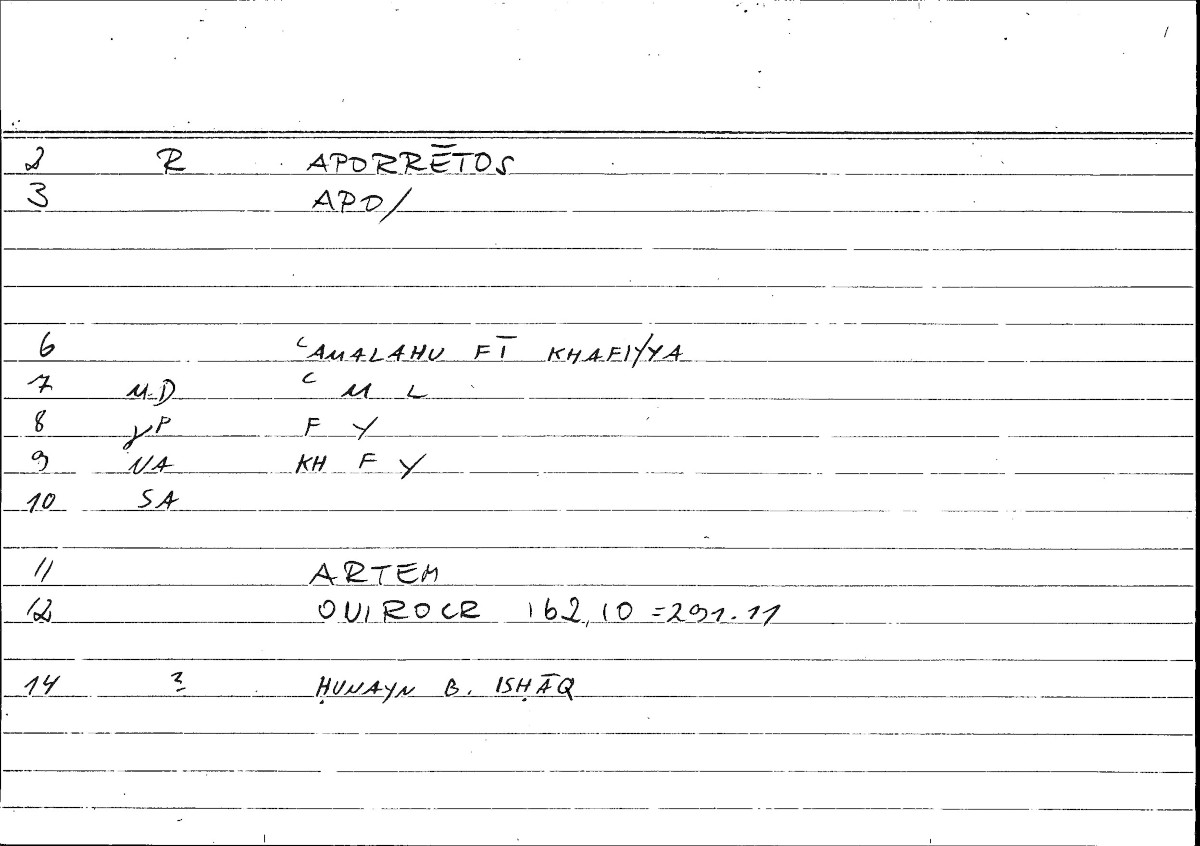 2 R APORRĒTOS
3 APO/
6 ʿAMALAHU FĪ KHAFIYYA
7 MD ʿ M L
8 F Y
9 NA KH F Y
10 SA
11 ARTEM
12 OVIROCR 162,10 =291.11
14 ? ḤUNAYN B. ISḤĀQ